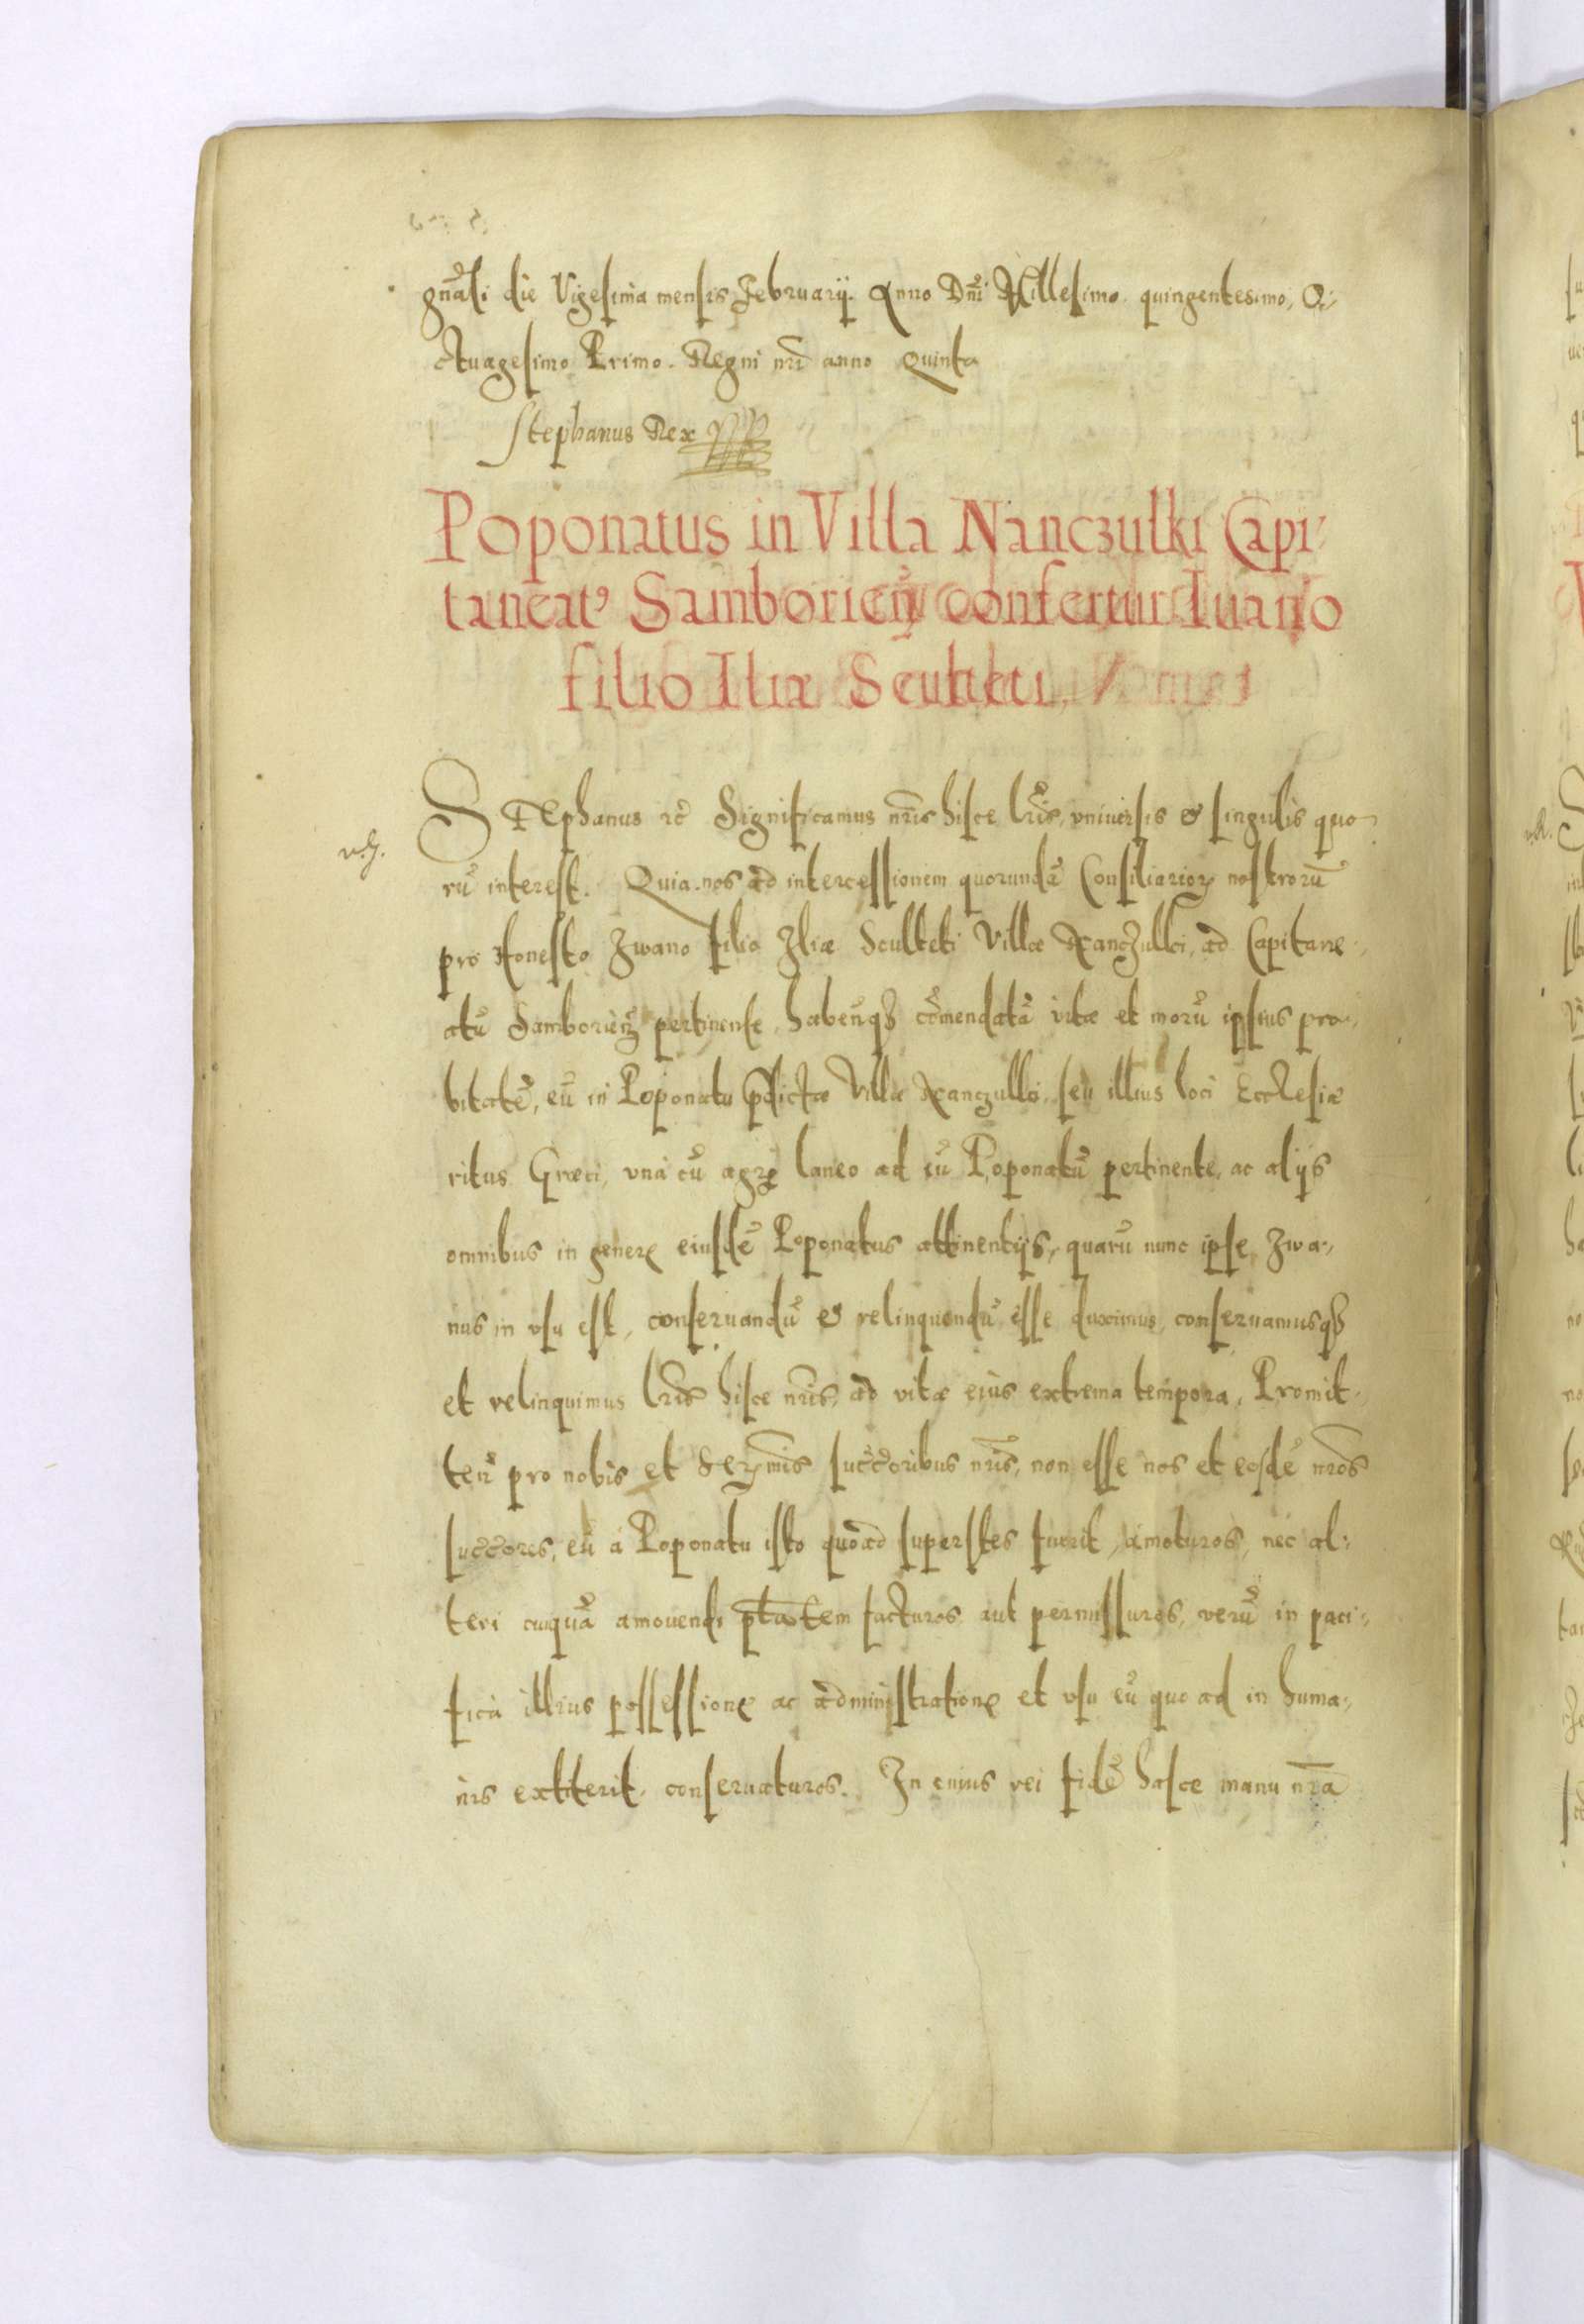 gnãli die Vigesima mensis Februarij. Anno Dni Millesimo quingentesimo, O-
ctuagesimo Primo. Regni nri anno Quinto
Stephanus Rex
Poponatus in Villa Nanczulki Capi-
taneat9 Samborien̄ confertur Iuano
filio Iliæ Sculteti.
v. g.
STephanus rc̃ Significamus nris hisce lris, vniuersis & singulis quo-
rũ interest. Quia nos ad intercessionem quorundã Consiliarioꝝ nostrorũ
pro Honesto Iwano filio Iliæ Sculteti Villæ Nanczulki, ad Capitane-
atũ Samborien̄ pertinente, habenꝗꝫ cõmendatã vitæ et morũ ipsius pro-
bitatẽ, eũ in Poponatu p̃dictæ Villæ Nanczulki, seu illius loci Ecclesiæ
ritus Græci, vnà cũ agro laneo ad eũ Poponatũ pertinente, ac alijs
omnibus in genere eiusdẽ Poponatus attinentijs, quarũ nunc ipse Iwa-
nus in vsu est, conseruandũ & relinquendũ esse duximus, conseruamusꝗꝫ
et relinquimus lris hisce nris, ad vitæ eius extrema tempora. Promit-
ten̄ pro nobis et Serꝫmis succ̃oribus nris, non esse nos et eosdẽ nros
succ̃ores, eũ à Poponatu isto quoad superstes fuerit, amoturos, nec al-
teri cuiquã amouendi ptãtem facturos aut permissuros, verũ in paci-
ficà illius possessione ac administratione et vsu eũ quo ad in huma-
nis extiterit conseruaturos. In cuius rei fidẽ hasce manu nra